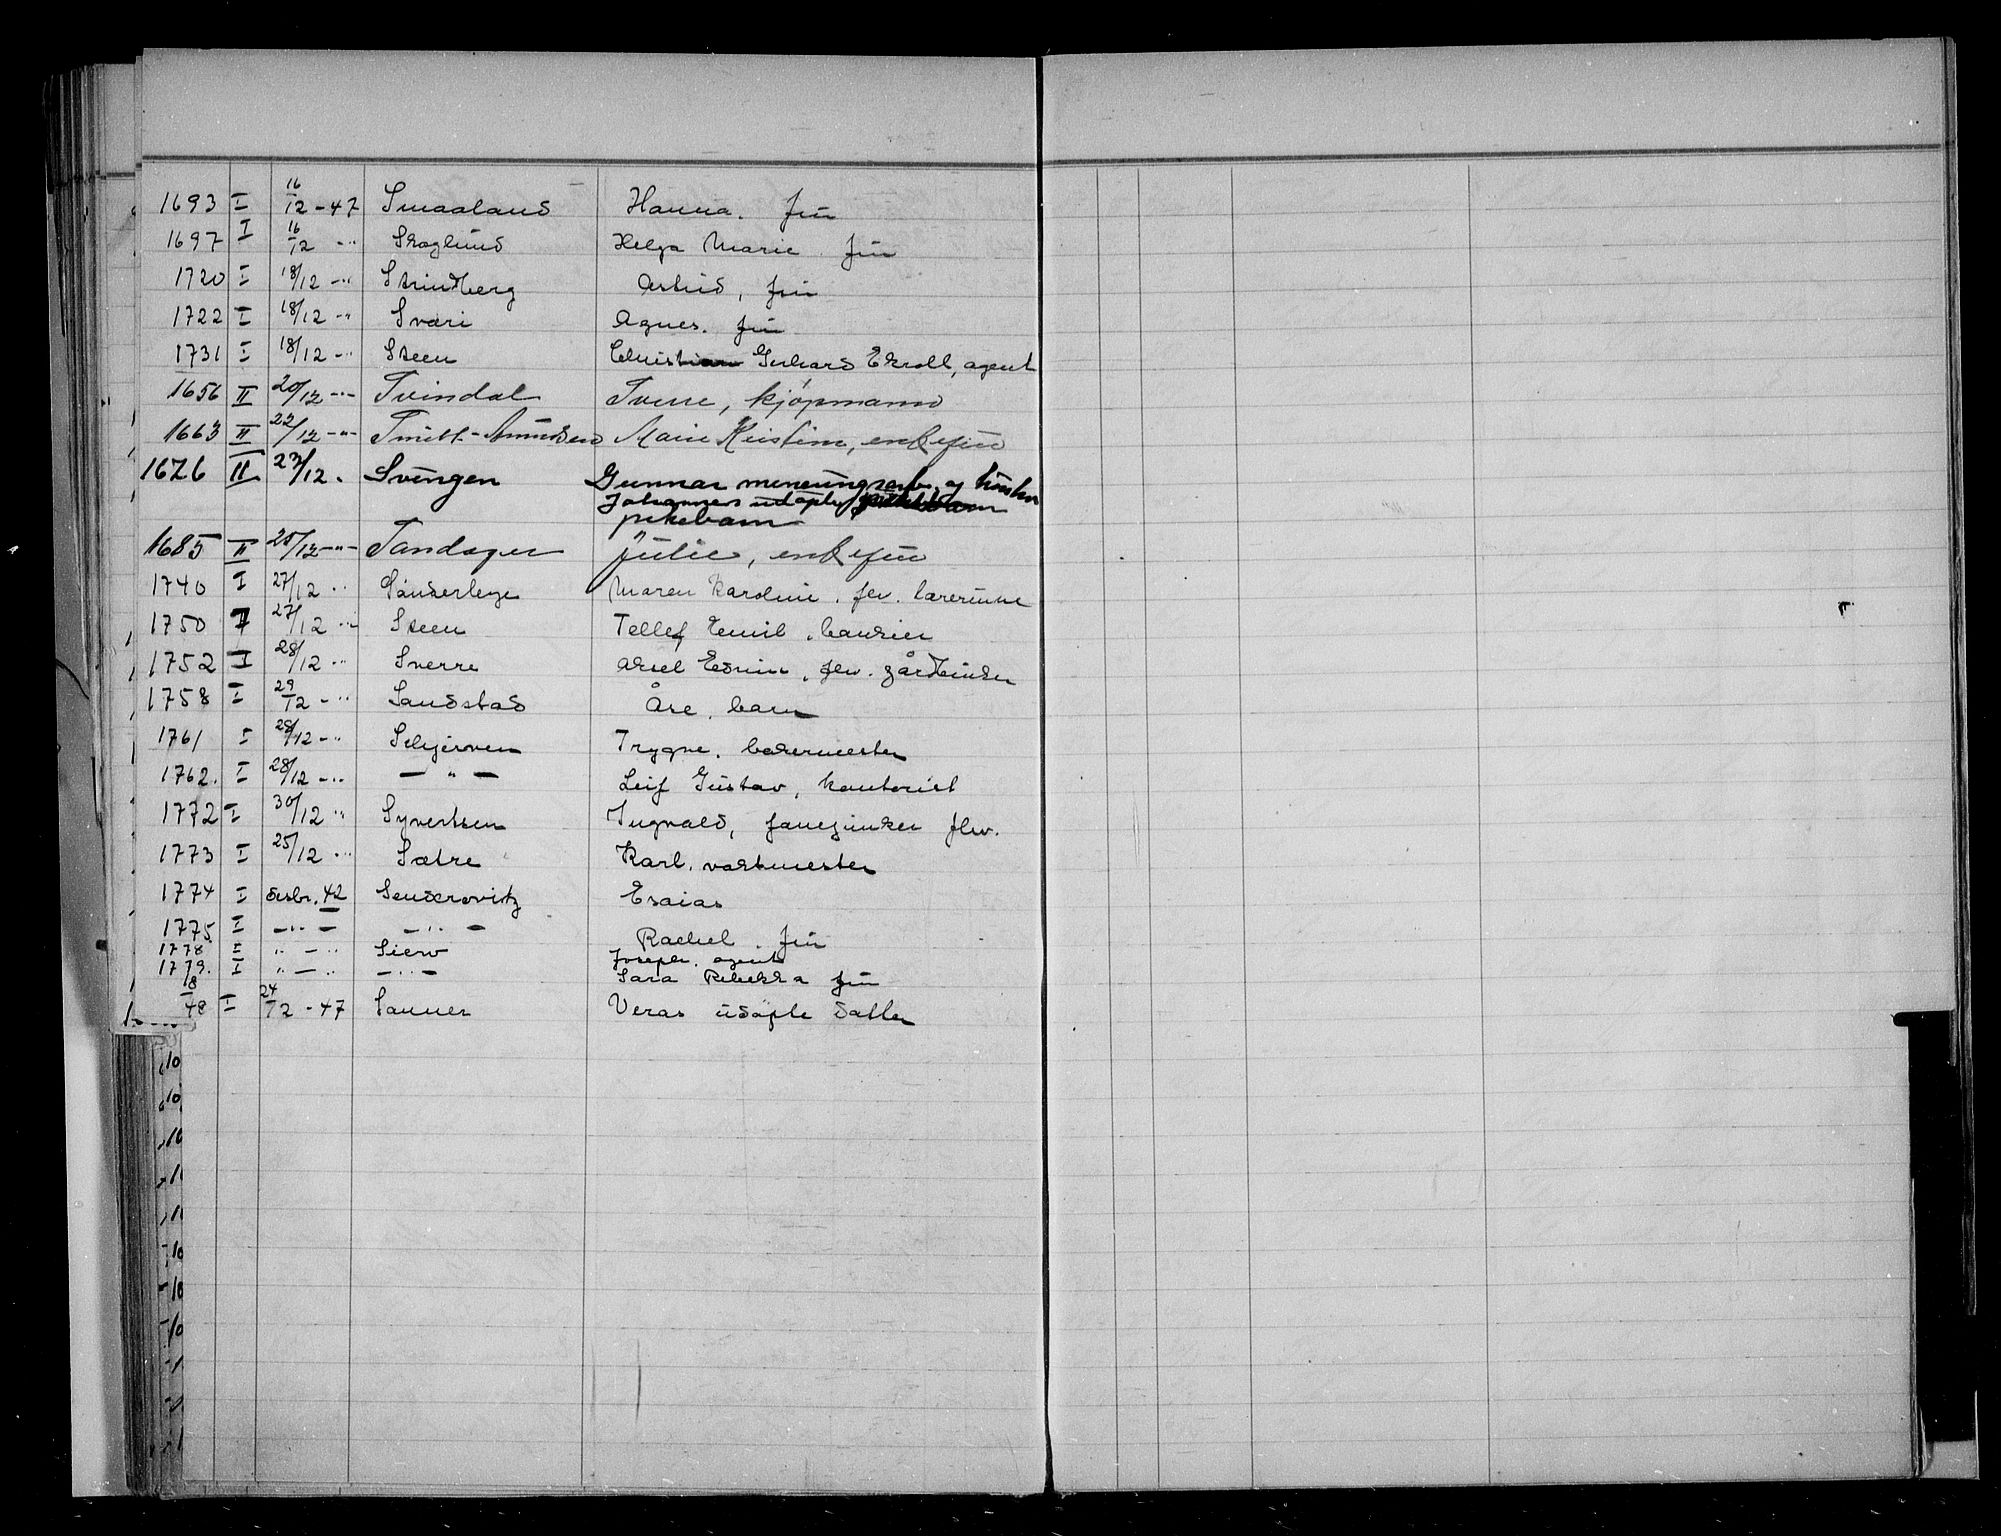 1693 I 16/12 -47 Smaaland Hanna. frú
1697 I 16/12 -"- Skoglund Helga Marie. frú
1720 I 18/12 -"- Strindberg Astrid, frú
1722 I 18/12 -"- Sværi Agnes. frú
1731 I 18/12 -"- Steen Christian Gerhard Ekroll, agent
1656 II 20/12 -"- Tvindal Sverre, kjøpmann
1663 II 22/12 -"- Smitt-Amundsen Marie Kristine, enkefrú
1676 II 23/12. Svingen Gunnar og hústru
Johannes udøpte pikebarn
pikebarn
1685 II 25/12 -"- Tandager Julie, enkefrú
1740 I 27/12 -"- Søiderleye Maren Karoline. fhv. lærerinne
1750 I 27/12 -"- Steen Tellef Emil. bankier
1752 I 28/12 -"- Sverre Aksel Edvin. fhv. gårdbruker
1758 I 29/12 -"- Sandstad Åse. barn
1761 I 28/12 -"- Schjerven Trygve. bakermester
1762. I 28/12 -"- — " — Leif Gustav, kontorist
1772 I 30/12 " Syvertsen Ingvald, fanejunker fhv.
1773 I 25/12 -"- Sætre Karl. vaktmester
1774 I desbr. 42 Senderovitz Esaias
1775 I -"- -"- Rachel. frú
1778 I " - " Scierv Joseph. agent
1779. I " — " —"— Sara Rebekka frú
8/48 I 24/12 -47 Sanner Veras údøpte datter